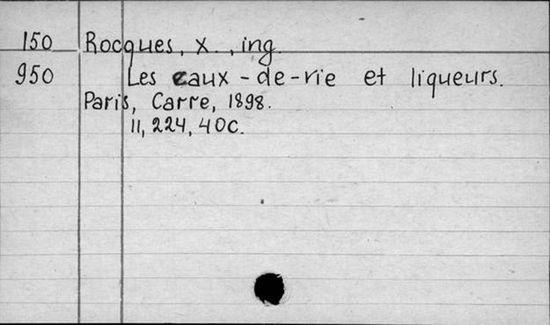 150 Rocques, X., ing.
950 Les eaux-de-vie et liqueurs.
Paris, Carre, 1898.
II, 224, 40c.